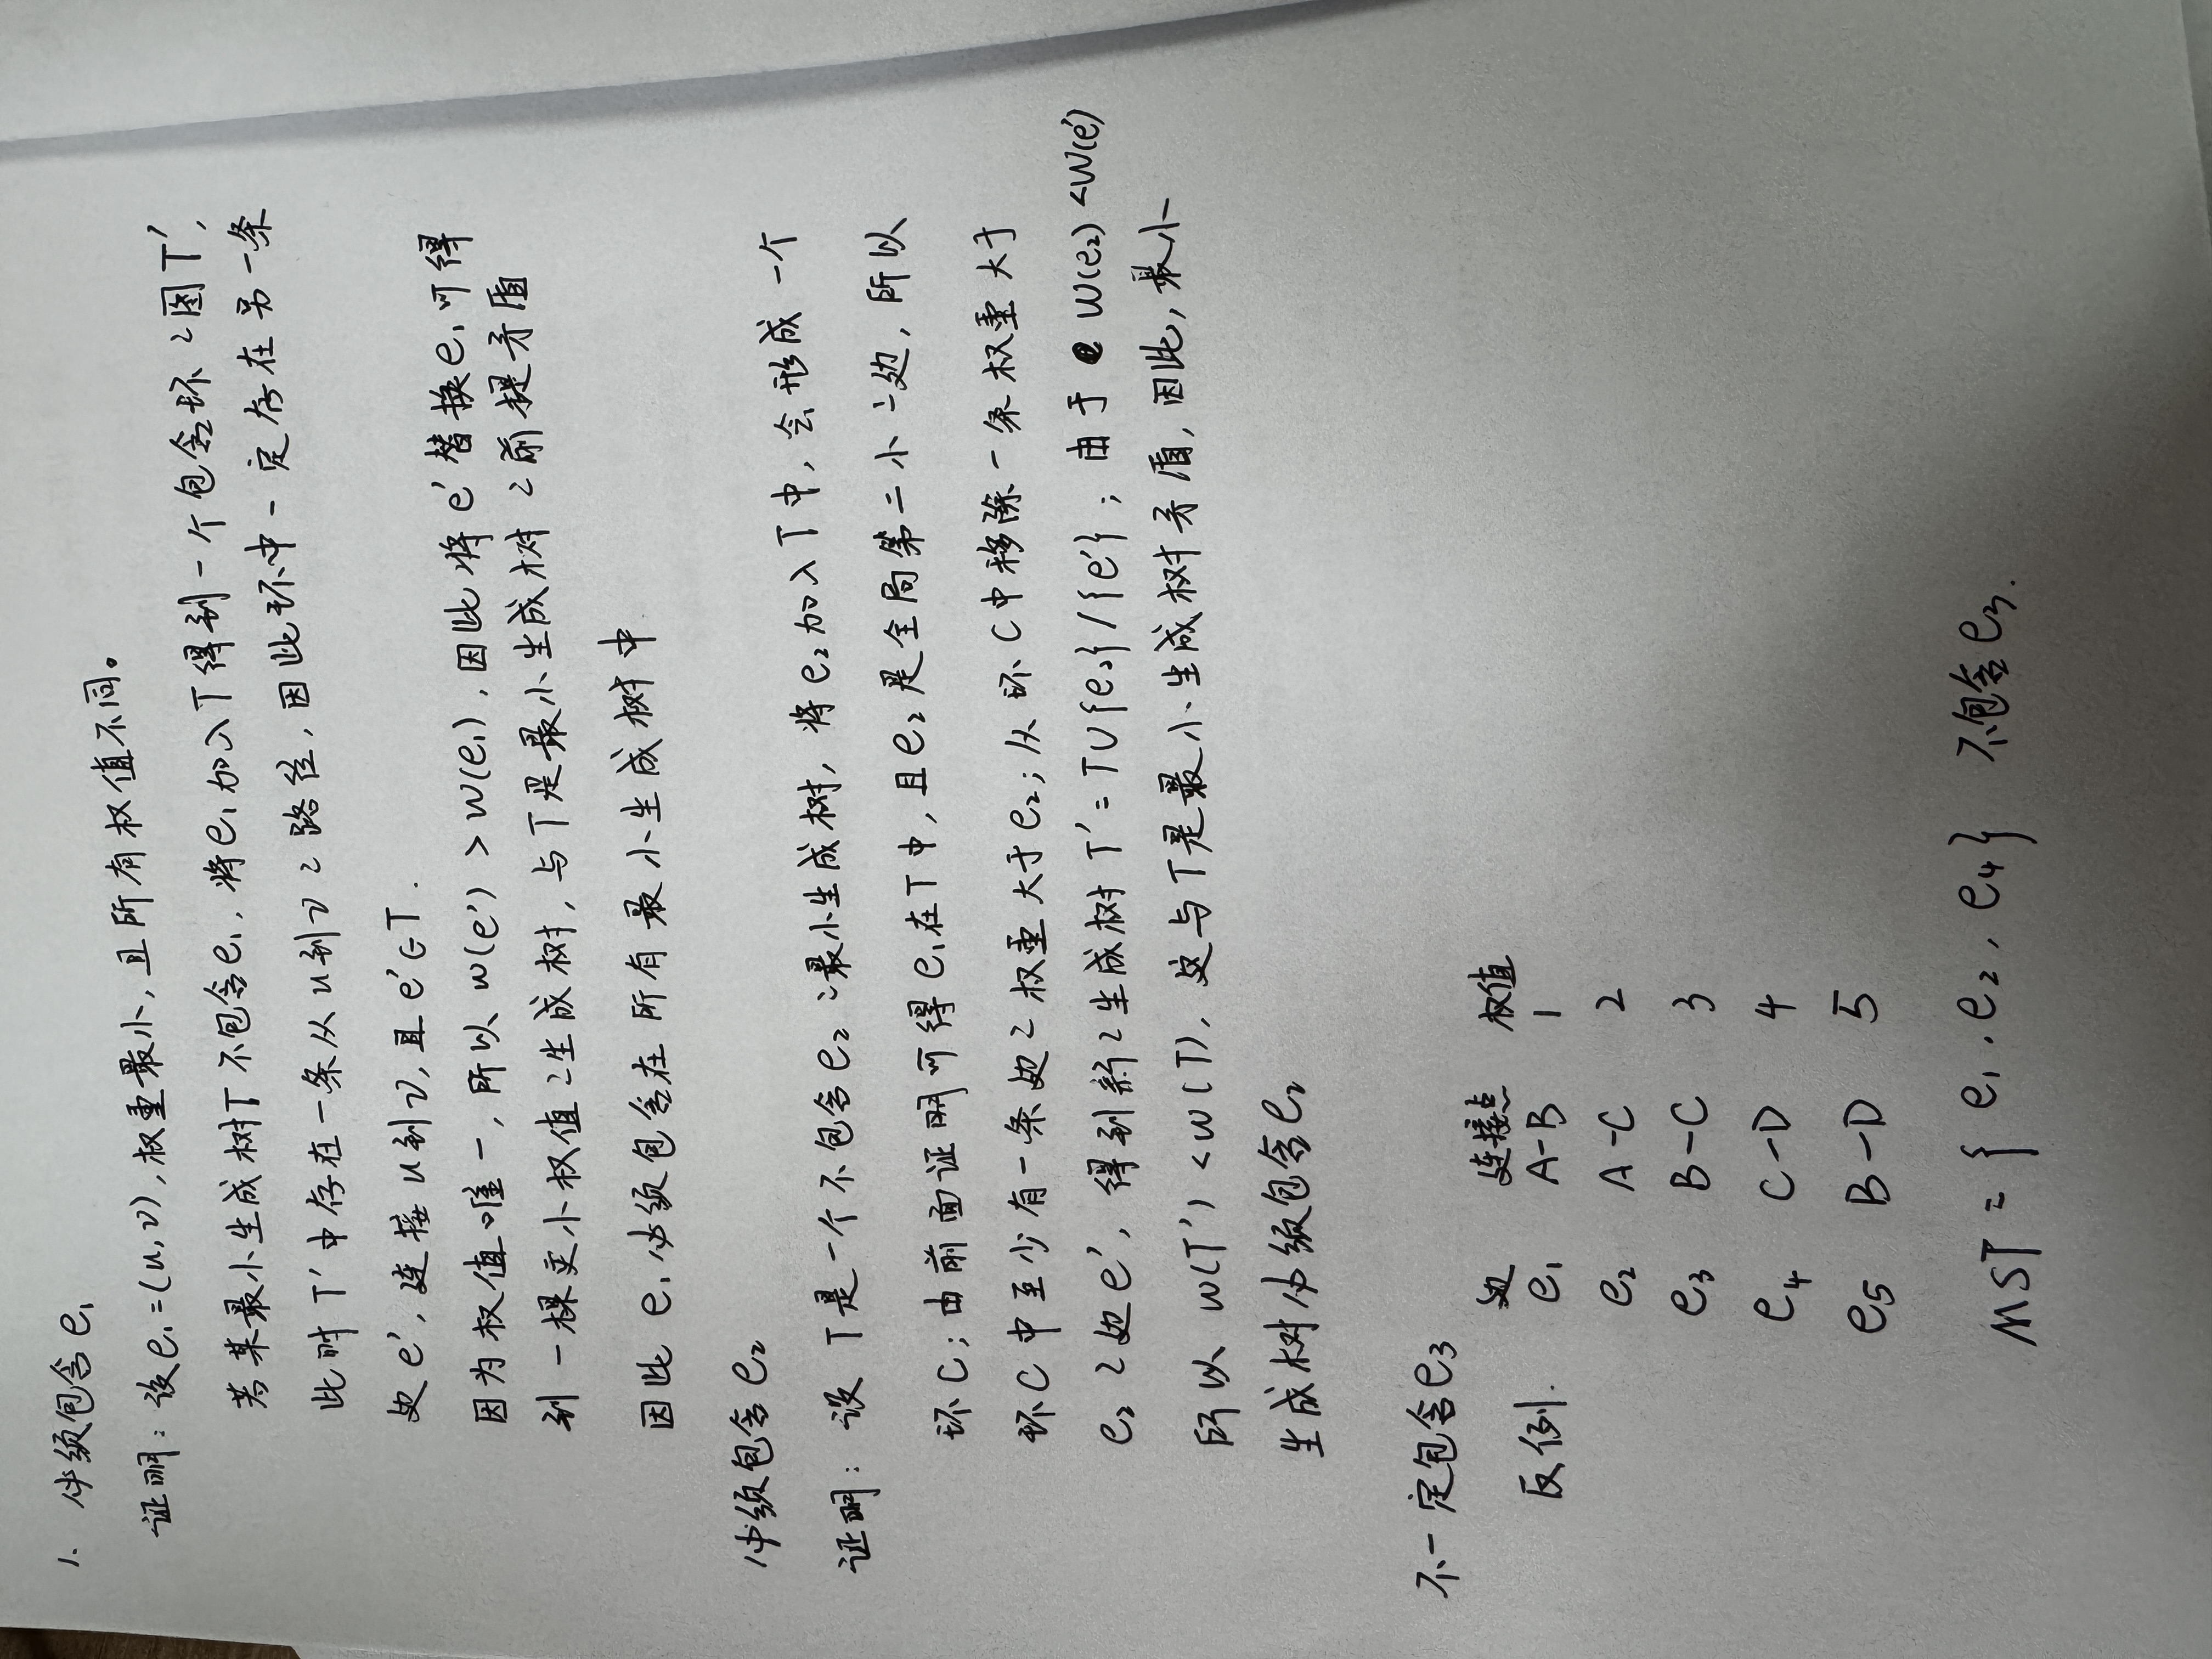 1. 必须包含e₁
证明：设e₁=(u,v),权重最小,且所有权值不同。
若某最小生成树T不包含e₁,将e₁加入T得到一个包含环之图T′,
此时T′中存在一条从u到v之路径,因此环中一定存在另一条
边e′,连接u到v,且e′∈T.
因为权值唯一,所以w(e′)>w(e₁),因此将e′替换e₁可得
到一棵更小权值之生成树,与T是最小生成树之前提矛盾
因此e₁必须包含在所有最小生成树中
必须包含e₂
证明：设T是一个不包含e₂之最小生成树,将e₂加入T中,会形成一个
环C;由前面证明可得e₁在T中,且e₂是全局第二小之边,所以
环C中至少有一条边之权重大于e₂;从环C中移除一条权重大于
e₂之边e′,得到新之生成树T′=T∪{e₂}/{e′};由于w(e₂)<w(e′)
所以w(T′)<w(T),这与T是最小生成树矛盾,因此,最小
生成树必须包含e₂
不一定包含e₃
边 连接点 权值
反例. e₁ A-B 1
e₂ A-C 2
e₃ B-C 3
e₄ C-D 4
e₅ B-D 5
MST={e₁,e₂,e₄} 不包含e₃.